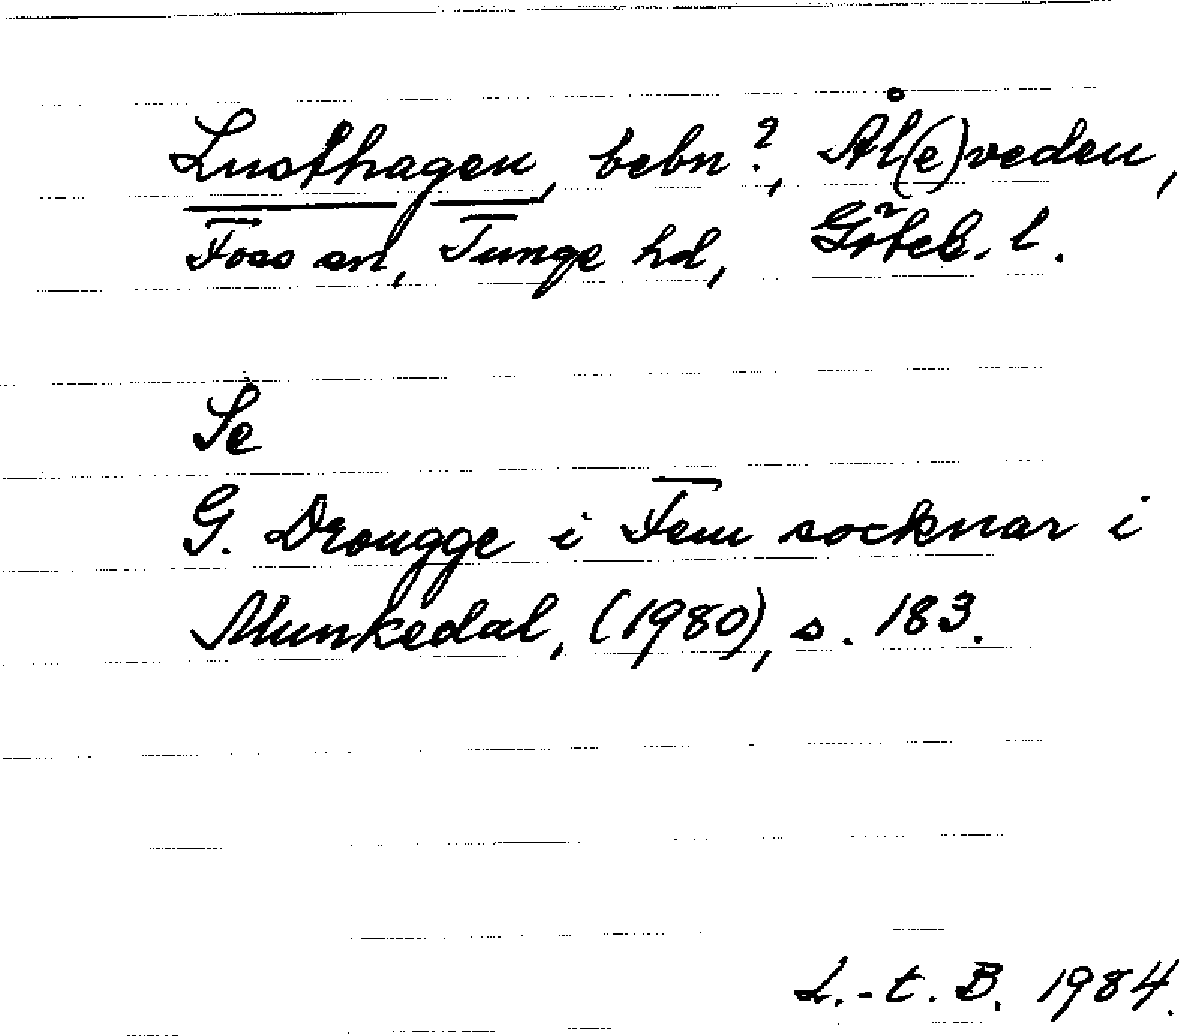 Lusthagen, bebn?, Ål(e)veden,
Foss sn, Tunge hd, Göteb. l.
Se
G. Drougge i Fem socknar i
Munkedal, (1980), s. 183.
L.-t. B. 1984.